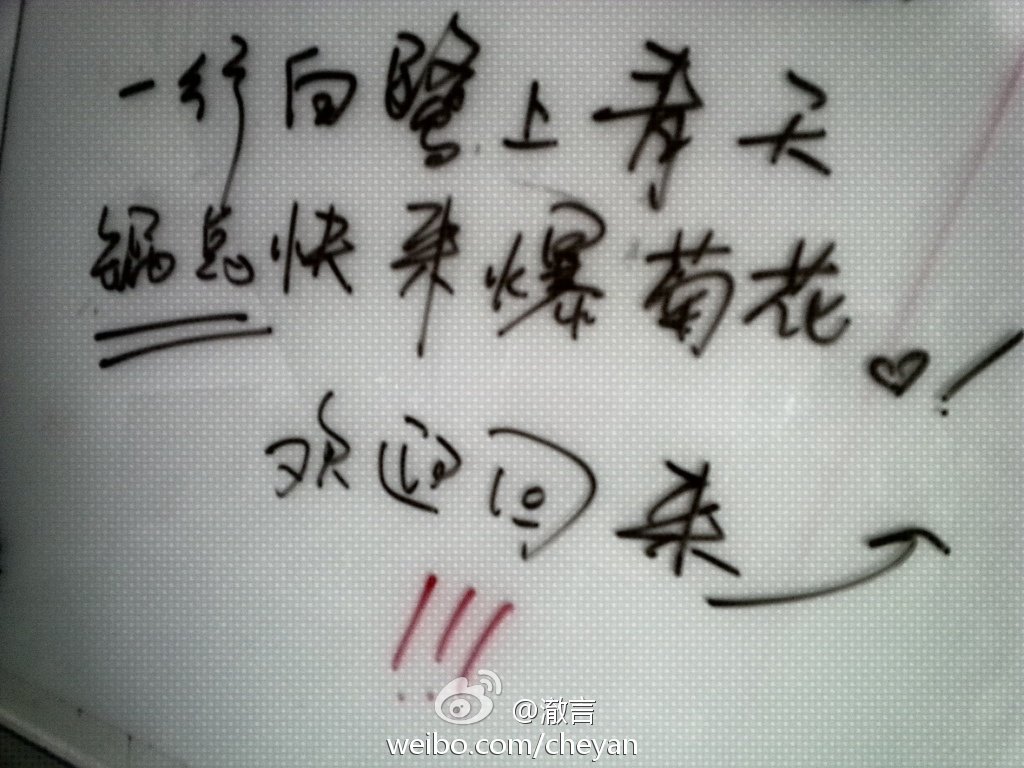 一行白鹭上青天
锅总快来爆菊花♡!
欢迎回来
!!!
@澈言
weibo.com/cheyan